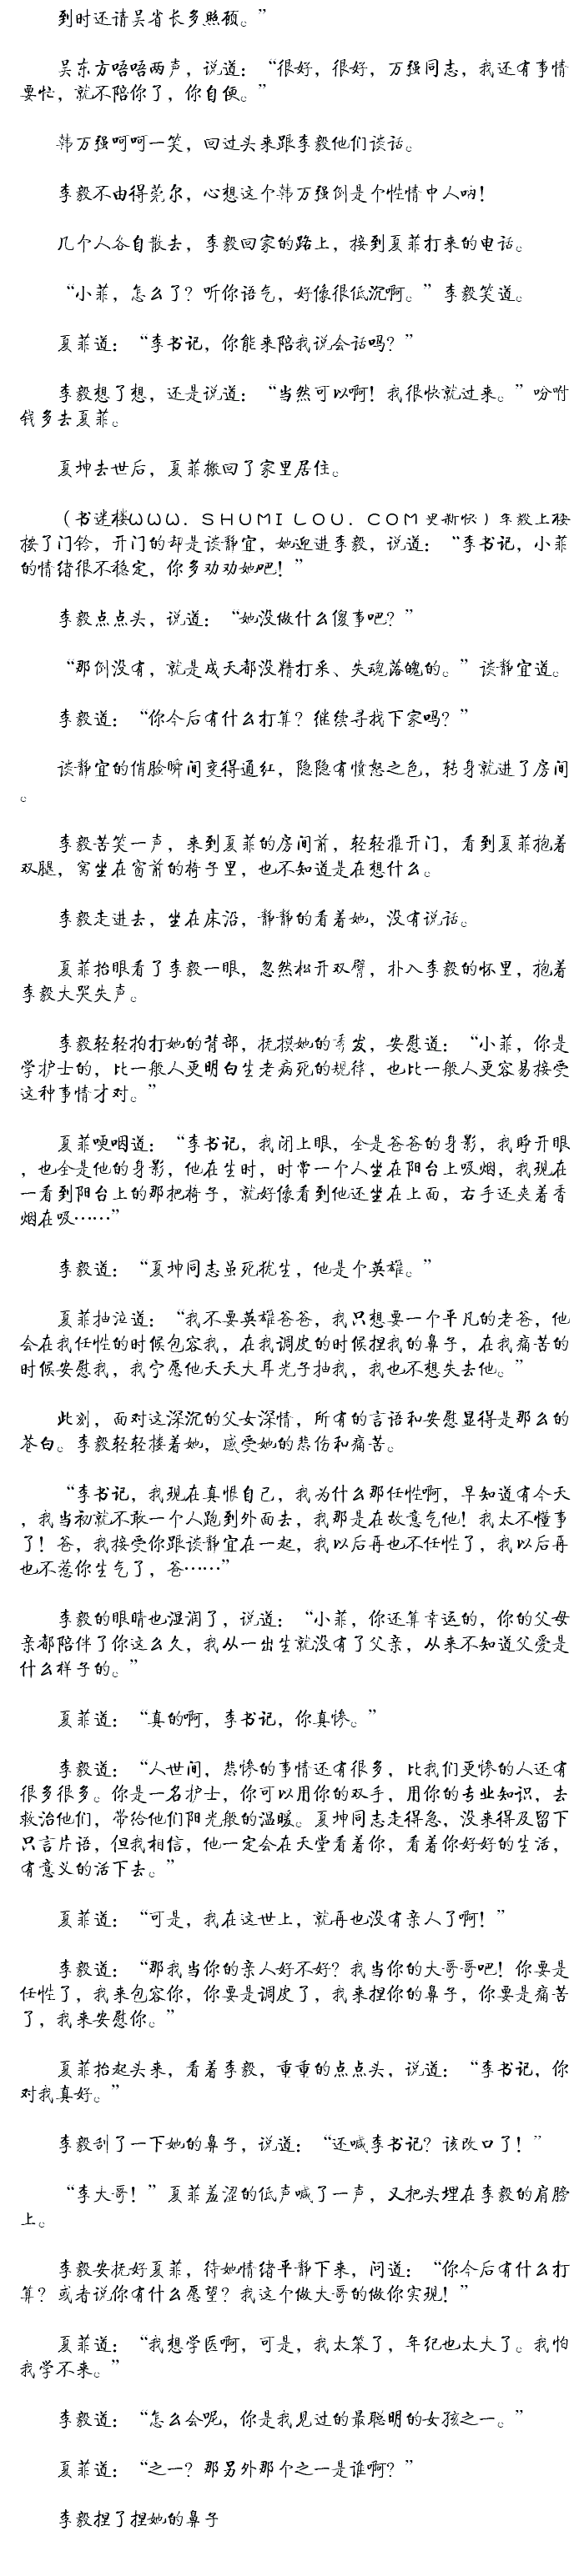 到时还请吴省长多照顾。”
吴东方唔唔两声，说道：“很好，很好，万强同志，我还有事情
要忙，就不陪你了，你自便。”
韩万强呵呵一笑，回过头来跟李毅他们谈话。
李毅不由得莞尔，心想这个韩万强倒是个性情中人呐！
几个人各自散去，李毅回家的路上，接到夏菲打来的电话。
“小菲，怎么了？听你语气，好像很低沉啊。”李毅笑道。
夏菲道：“李书记，你能来陪我说会话吗？”
李毅想了想，还是说道：“当然可以啊！我很快就过来。”吩咐
钱多去夏菲。
夏坤去世后，夏菲搬回了家里居住。
（书迷楼WWW．ＳＨＵＭＩＬＯＵ．ＣＯＭ更新快）李毅上楼
按了门铃，开门的却是谈静宜，她迎进李毅，说道：“李书记，小菲
的情绪很不稳定，你多劝劝她吧！”
李毅点点头，说道：“她没做什么傻事吧？”
“那倒没有，就是成天都没精打采、失魂落魄的。”谈静宜道。
李毅道：“你今后有什么打算？继续寻找下家吗？”
谈静宜的俏脸瞬间变得通红，隐隐有愤怒之色，转身就进了房间
。
李毅苦笑一声，来到夏菲的房间前，轻轻推开门，看到夏菲抱着
双腿，窝坐在窗前的椅子里，也不知道是在想什么。
李毅走进去，坐在床沿，静静的看着她，没有说话。
夏菲抬眼看了李毅一眼，忽然松开双臂，扑入李毅的怀里，抱着
李毅大哭失声。
李毅轻轻拍打她的背部，抚摸她的秀发，安慰道：“小菲，你是
学护士的，比一般人更明白生老病死的规律，也比一般人更容易接受
这种事情才对。”
夏菲哽咽道：“李书记，我闭上眼，全是爸爸的身影，我睁开眼
，也全是他的身影，他在生时，时常一个人坐在阳台上吸烟，我现在
一看到阳台上的那把椅子，就好像看到他还坐在上面，右手还夹着香
烟在吸……”
李毅道：“夏坤同志虽死犹生，他是个英雄。”
夏菲抽泣道：“我不要英雄爸爸，我只想要一个平凡的老爸，他
会在我任性的时候包容我，在我调皮的时候捏我的鼻子，在我痛苦的
时候安慰我，我宁愿他天天大耳光子抽我，我也不想失去他。”
此刻，面对这深沉的父女深情，所有的言语和安慰显得是那么的
苍白。李毅轻轻搂着她，感受她的悲伤和痛苦。
“李书记，我现在真恨自己，我为什么那任性啊，早知道有今天
，我当初就不敢一个人跑到外面去，我那是在故意气他！我太不懂事
了！爸，我接受你跟谈静宜在一起，我以后再也不任性了，我以后再
也不惹你生气了，爸……”
李毅的眼睛也湿润了，说道：“小菲，你还算幸运的，你的父母
亲都陪伴了你这么久，我从一出生就没有了父亲，从来不知道父爱是
什么样子的。”
夏菲道：“真的啊，李书记，你真惨。”
李毅道：“人世间，悲惨的事情还有很多，比我们更惨的人还有
很多很多。你是一名护士，你可以用你的双手，用你的专业知识，去
救治他们，带给他们阳光般的温暖。夏坤同志走得急，没来得及留下
只言片语，但我相信，他一定会在天堂看着你，看着你好好的生活，
有意义的活下去。”
夏菲道：“可是，我在这世上，就再也没有亲人了啊！”
李毅道：“那我当你的亲人好不好？我当你的大哥哥吧！你要是
任性了，我来包容你，你要是调皮了，我来捏你的鼻子，你要是痛苦
了，我来安慰你。”
夏菲抬起头来，看着李毅，重重的点点头，说道：“李书记，你
对我真好。”
李毅刮了一下她的鼻子，说道：“还喊李书记？该改口了！”
“李大哥！”夏菲羞涩的低声喊了一声，又把头埋在李毅的肩膀
上。
李毅安抚好夏菲，待她情绪平静下来，问道：“你今后有什么打
算？或者说你有什么愿望？我这个做大哥的做你实现！”
夏菲道：“我想学医啊，可是，我太笨了，年纪也太大了。我怕
我学不来。”
李毅道：“怎么会呢，你是我见过的最聪明的女孩之一。”
夏菲道：“之一？那另外那个之一是谁啊？”
李毅捏了捏她的鼻子